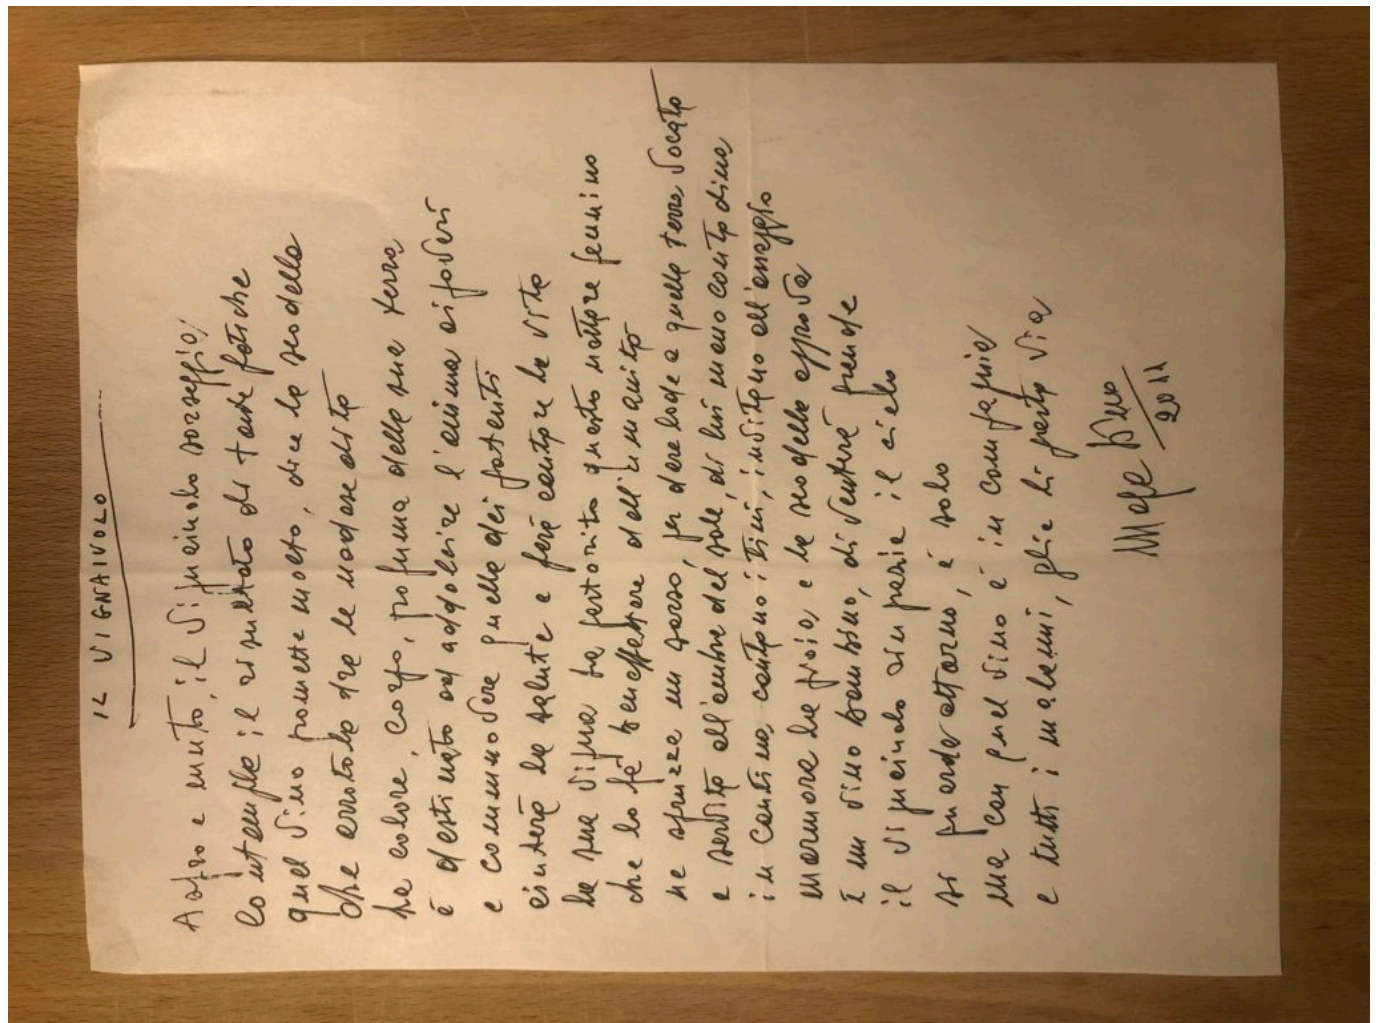 IL VIGNAIVOLO
Assorto e muto, il vignaiuolo sorseggia,
contempla il risultato di tante fatiche
quel vino promette molto, dice la scodella
che arrotola tra le nodose dita
ha colore, corpo, profuma della sua terra
è destinato ad addolcire l'anima ai poveri
e commuovere quella dei potenti
aiuterà la salute e farà cantare la vita
la sua vigna ha partorito questo nettare fennino
che lo fa benefattore dell'umanità
ne spruzza un sorso, per dare lode a quella terra vocata
e servita all'ombra del sole, di lui mano contadina
in cantina cantano i tini, invitano all'assaggio
mormora la gioia e la scodella approva
è un vino bambino, diventerà grande
il vignaiuolo ringrazia il cielo
si guarda attorno, è solo
ma con quel vino è in compagnia
e tutti i malanni, glie li porta via
2011